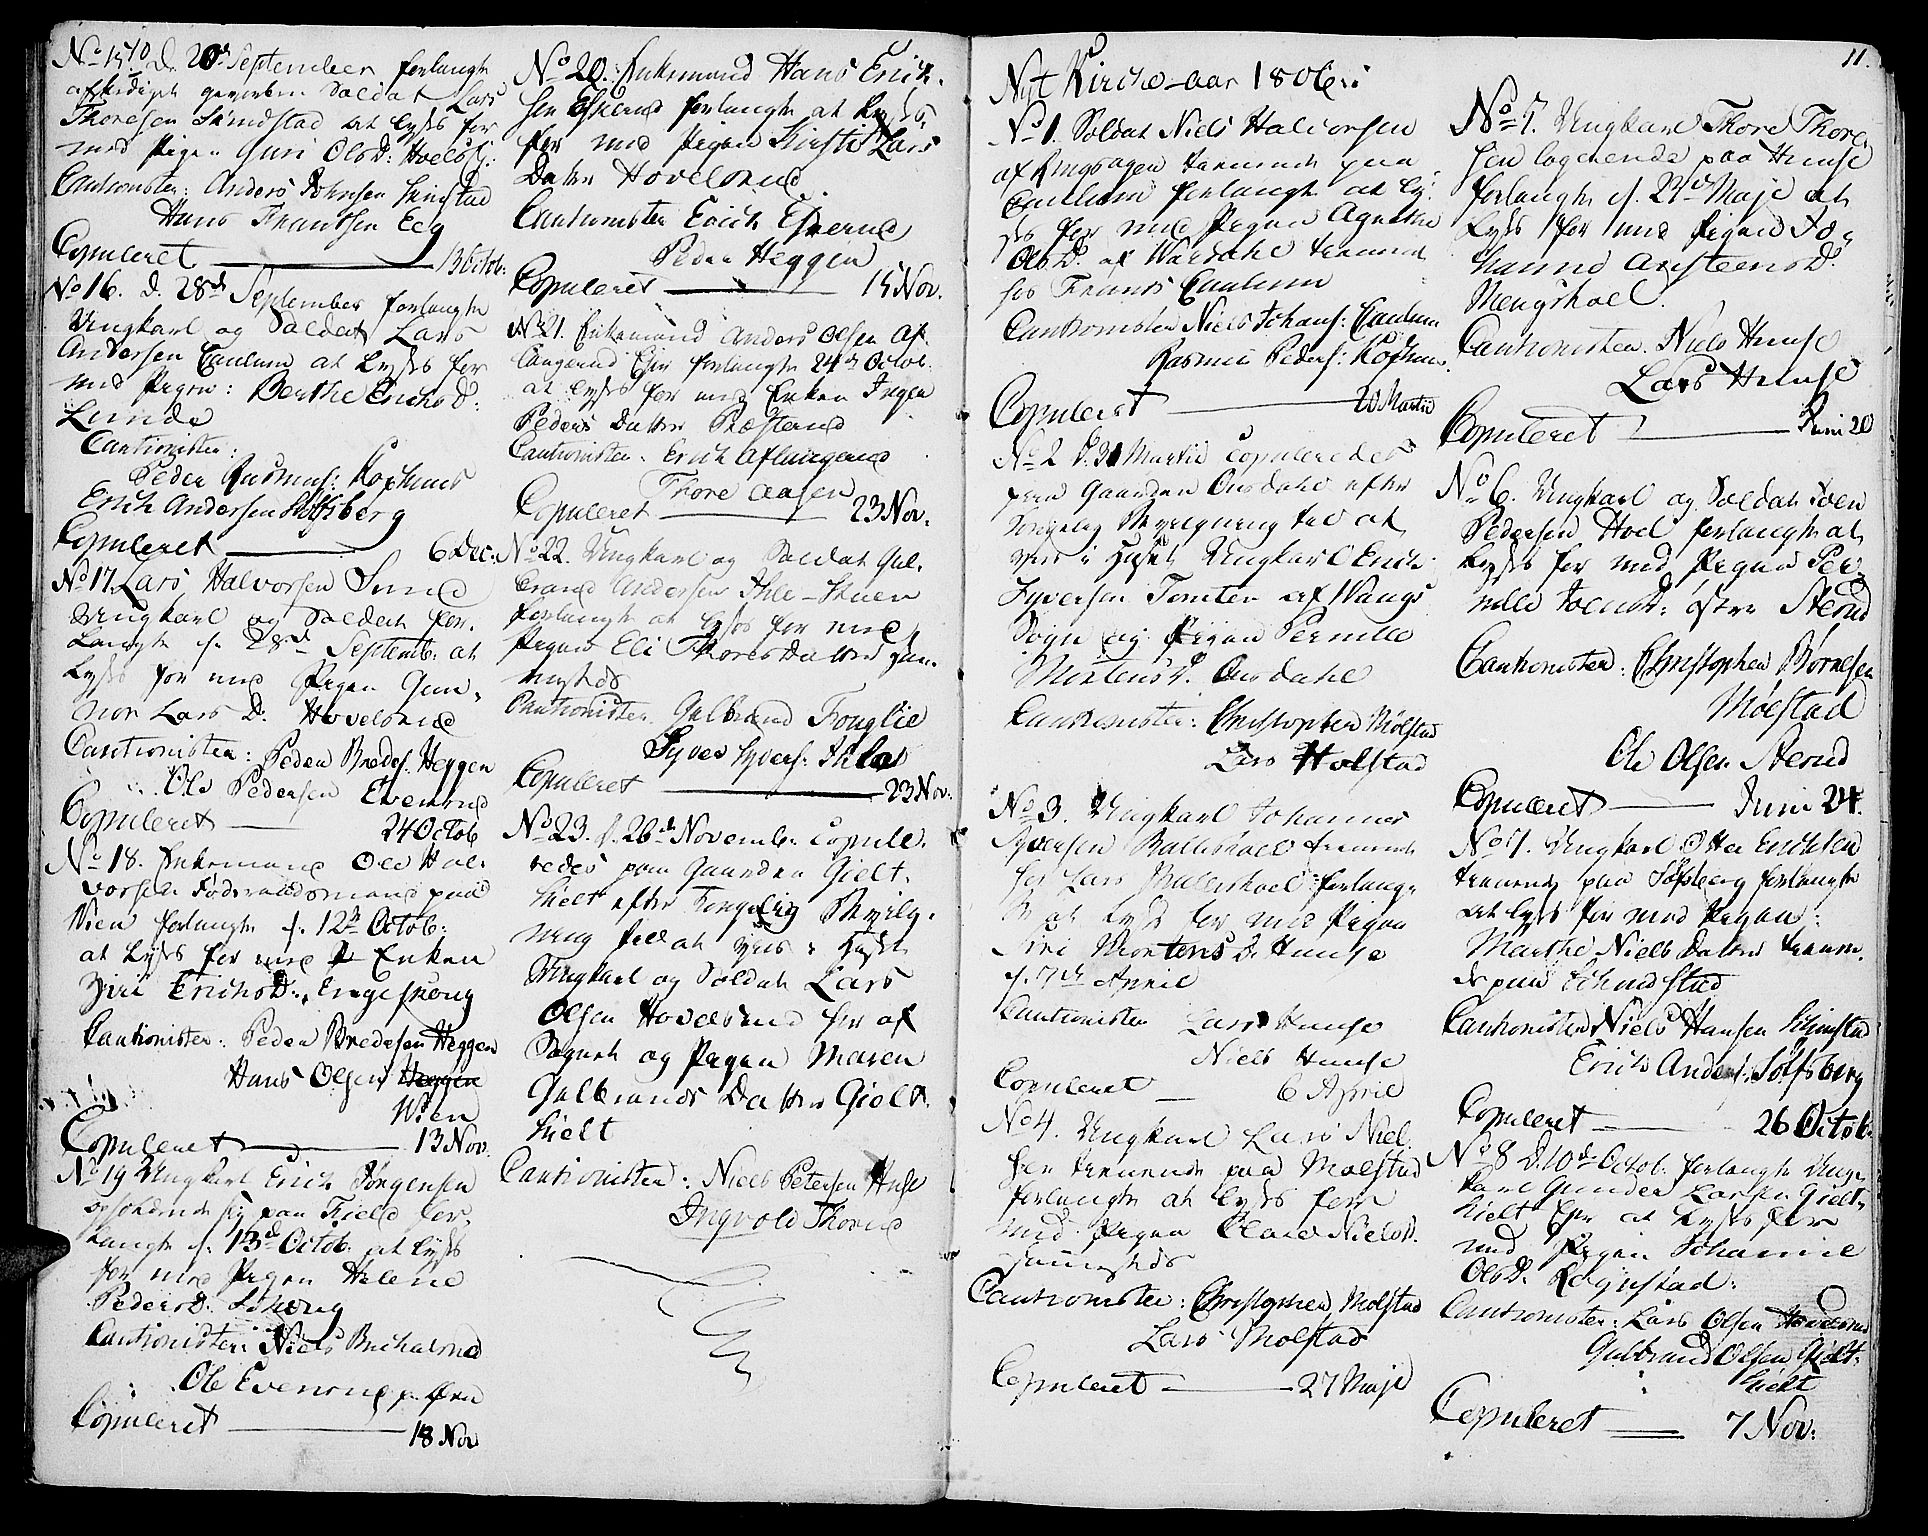 No 15 10 D. 20de September forlangte
afskediget geworben Soldat Lars
Thoresen Skindstad at lyses for
med Pigen Guri OlsD: Hoels
Cautionister: Anders Johnsen Skinstad
Hans Frantsen Eeg
Copuleret 13 Octob:
No 16. d. 28de September forlangte
Ungkarl og Soldat Lars
Andersen Caulum at lyses for
med Pigen: Berthe ErichsD:
Lunde
Cautionister:
Peder Rasmus: Kophuus
Erich Andersen Sølfsberg
Copuleret 6 Dec:
No 17. Lars Halvorsen Sund
Ungkarl og Soldat for-
langte d. 28de Septemb: at
lyses for med Pigen Gun-
nor Lars D. Hovelsrud
Cautionister: Peder Bredes: Heggen
Ole Pedersen Evenrud
Copuleret 24 Octob
No 18. Enkemand Ole Hal-
vorsen Føderaadsmand paa
Wien forlangte d. 12te Octob:
at lyses for med Enken
Siri ErichsD: Engespong
Cautionister: Peder Bredesen Heggen
Hans Olsen Heggen
Wien
Copuleret 13 Nov.
No 19 Ungkarl Erich Jørgensen
opholdende sig paa Field for-
langte d. 13de Octob. at lyses
for med Pigen Helene
PedersD.
Cautionister: Niels
Ole Evenrud
Copuleret 18 Nov
No 20. Enkemand Hans Erich-
sen Eskerud forlangte at lyses
for med Pigen Kirsti Lars
Datter Hovelsrud
Cautionister Erich Eskerud
Peder Heggen
Copuleret 15 Nov.
No 21. Enkemand Anders Olsen Af-
langerud Eier forlangte 24de Octob.
at lyses for med Enken Inger
Peders Datter Præsterud
Cautionister. Erich Aflangerud
Thore Aasen
Copuleret 23 Nov.
No 22. Ungkarl og Soldat Gul-
brand Andersen Ihle-Stuen
forlangte at lyses for med
Pigen Eli Thoresdatter sam-
mesteds
Cautionister. Gulbrand Fonglie
Syver Syvers: Ihle
Copuleret 23 Nov.
No 23. d. 26de Novemb. copule-
redes paa Gaarden Gielt-
hielt efter Kongelig Bevilg-
ning til at vies i Huset
Ungkarl og Soldat Lars
Olsen Hovelsrud her af
Sognet og Pigen Maren
Gulbrands Datter Gielt-
hielt
Cautionister: Niels Petersen Hunse
Ingvold Thorud
11.
Nyt Kirke-aar 1806.
No 1. Soldat Niels Halvorsen
af Ringsagen tienende paa
Caulum forlangte at ly-
ses for med Pigen Agnethe
OlsD. af Wardahl tienende
hos Frands Caulum
Cautionister Niels Johans: Caulum
Rasmus Peders: Kophuus.
Copuleret Martii
No 2 D. 31 Martii copuleredes
paa Gaarden Onsdahl efter
Kongelig Bevilgning til at
vies i Huset Ungkarl Erich
Syversen Tomten af Wangs
Sogn og Pigen Pernille
MortensD. Onsdahl
Cautionister: Christopher Mølstad
Lars Holstad
No 3. Ungkarl Johannes
Syversen Ballishoel tienende
hos Lars Ballishoel forlang-
te at lyses for med Pigen
Siri Mortens D. Hunse
d. 7de April
Cautionister Lars Hunse
Niels Hunse
Copuleret 6 April
No 4. Ungkarl Lars Niel-
sen tienende paa Mølstad
forlangte at lyses for
med Pigen Olave NielsD.
sammesteds
Cautionister: Christopher Mølstad
Lars Mølstad
Copuleret 27 Maji
No 5. Ungkarl Thore Thore-
sen logerende paa Hunse
forlangte d. 23de Maji at
lyses for med Pigen Jo-
hanne AusteensD.
Mengshoel.
Cautionister. Niels Hunse
Lars Hunse
Copuleret Juni 20
No 6. Ungkarl og Soldat Joen
Pedersen Hoel forlangte at
lyses for med Pigen Per-
nille JoensD: østre Sterud
Cautionister: Christopher Børresen
Mølstad
Ole Olsen Sterud
Copuleret Juni 24.
No 7. Ungkarl Otter Erichsen
tienende paa Sølfsberg forlangte
at lyses for med Pigen:
Marthe Niels Datter tienen-
de paa Schindstad
Cautionister Niels Hansen Schinstad
Erich Anders: Sølfsberg
Copuleret 26 Octob.
No 8 D. 10de Octob. forlangte Ung-
karl Gunder Larsen Gielt-
hielt Eier at lyses for
med Pigen Johanne
OlsD. Lognstad.
Cautionister: Lars Olsen Hovelsrud
Gulbrand Olsen Gielt-
hielt
Copuleret 7 Nov: